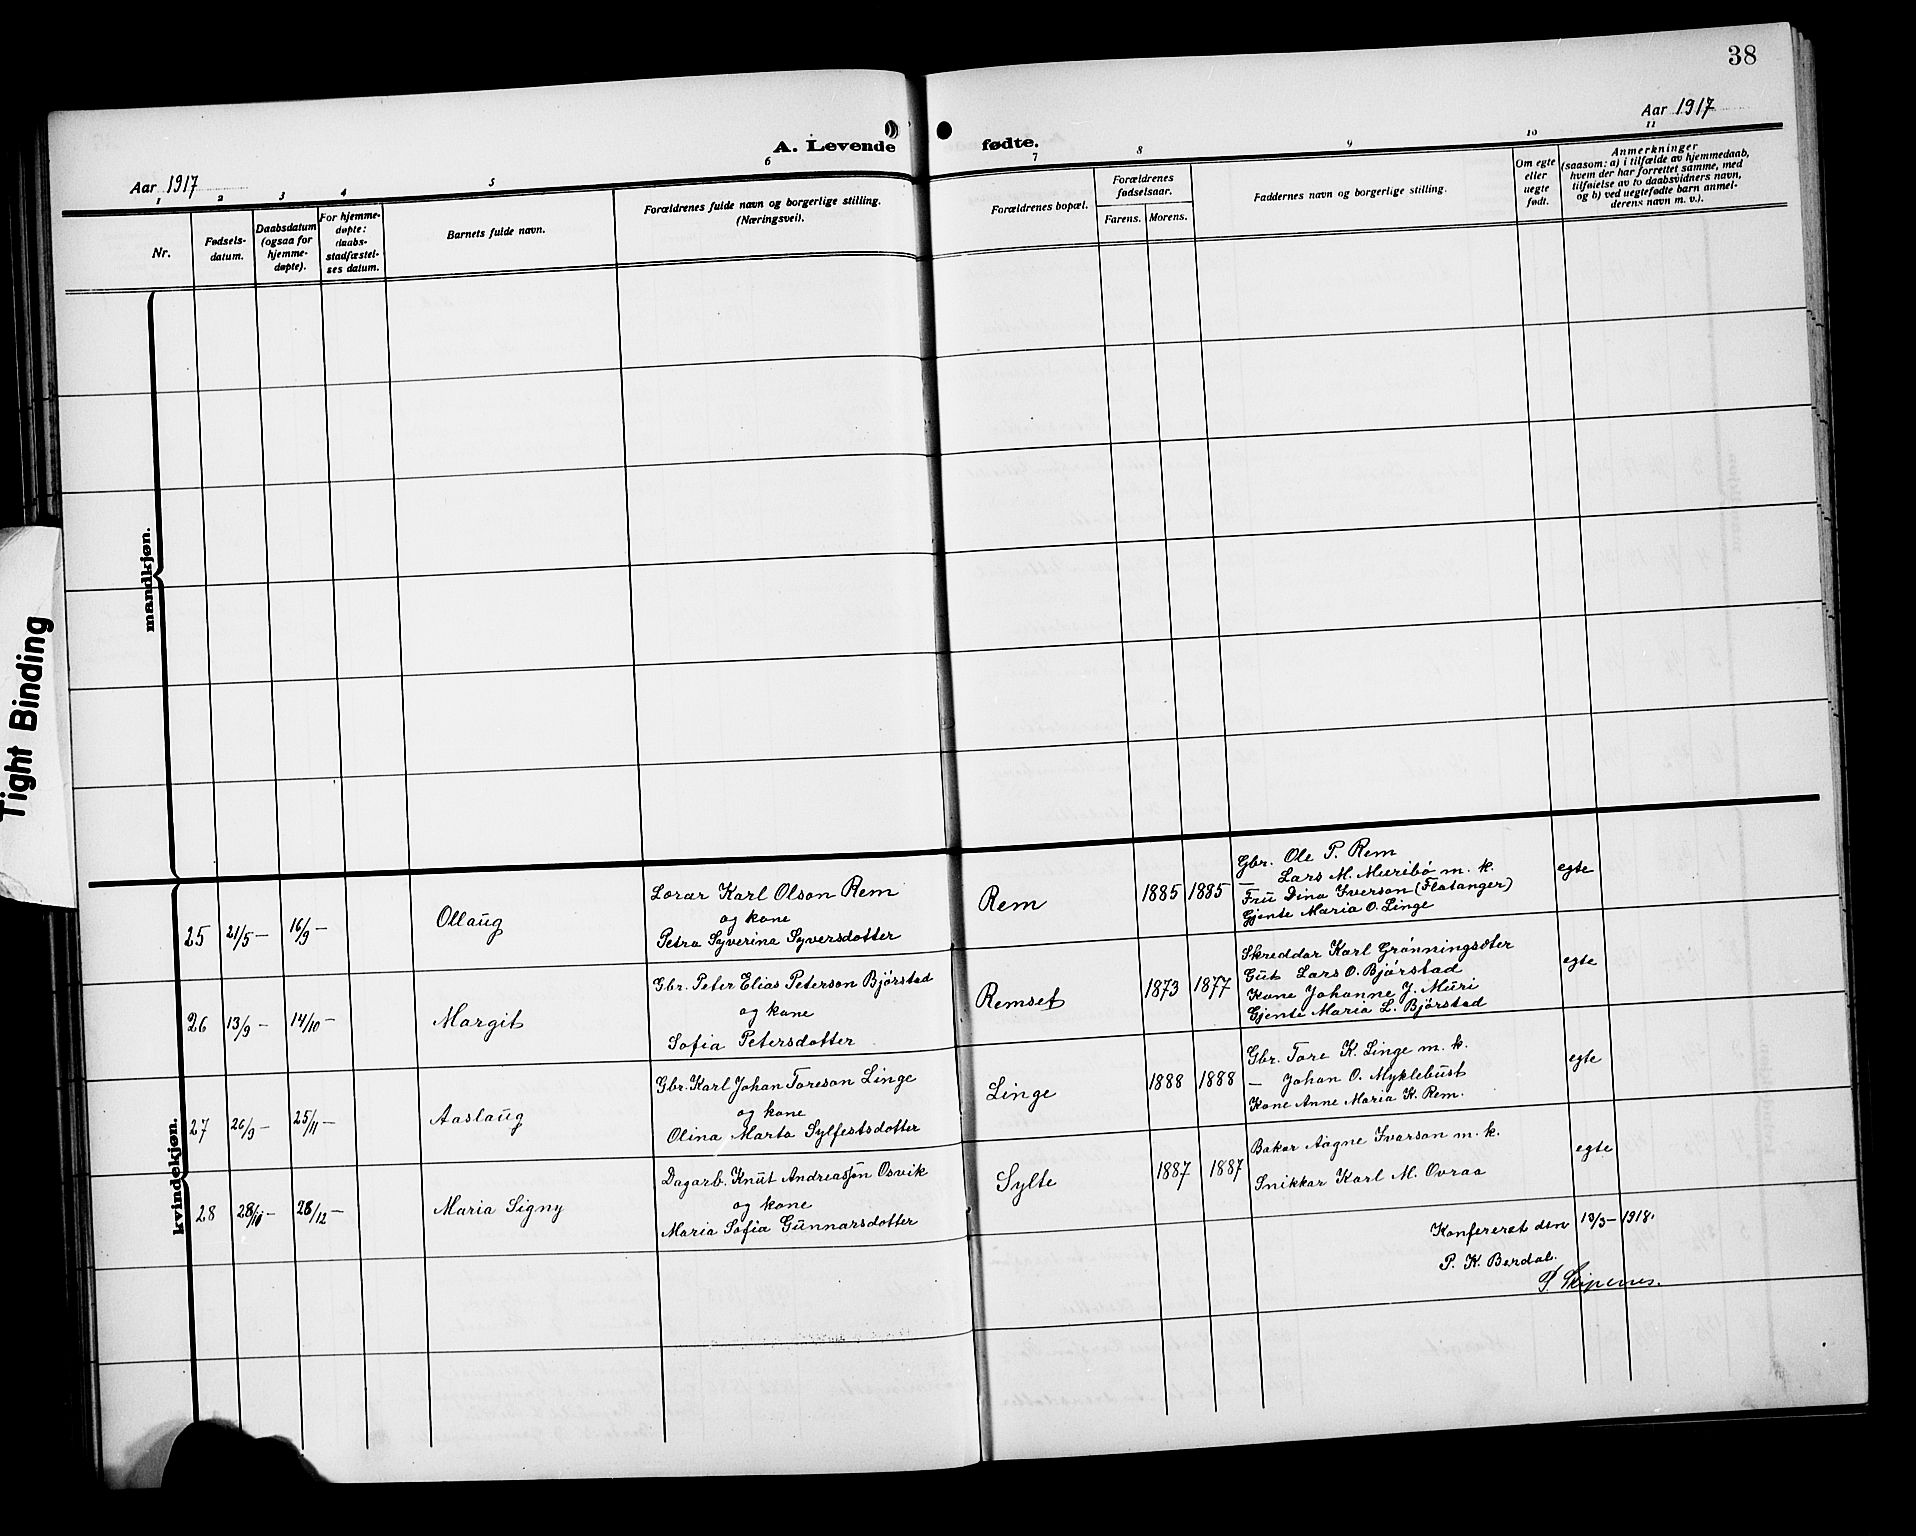 38
Aar 1917
Aar 1917
A. Levende fødte.
1 2 3 4 5 6 7 8 9 10 11
Nr.
Fødsels-
datum.
Daabsdatum
(ogsaa for
hjemme-
døpte).
For hjemme-
døpte:
daabs-
stadfæstel-
ses datum.
Barnets fulde navn.
Forældrenes fulde navn og borgerlige stilling.
(Næringsvei).
Forældrenes bopæl.
Forældrenes
fødselsaar.
Farens. Morens.
Faddernes navn og borgerlige stilling.
Om egte
eller
uegte
født.
Anmerkninger
(saasom: a) i tilfælde av hjemmedaab,
hvem der har forrettet samme, med
tilføielse av to daabsvidners navn,
og b) ved uegtefødte barn anmel-
derens navn m. v.).
mandkjøn.
kvindekjøn.
25 21/5 – 16/9 – Ollaug
Lærar Karl Olson Rem
og kone
Petra Syverina Syversdotter
Rem 1885 1885
Gbr. Ole P. Rem
— Lars M. Muribø m. k.
Fru Dina Iverson (Flatanger)
Gjente Maria O. Linge
egte
26 13/9 – 14/10 – Margit
Gbr. Peter Elias Peterson Bjørstad
og kone
Sofia Petersdotter
Remset 1873 1877
Skreddar Karl Grønningsæter
Gut Lars O. Bjørstad
Kone Johanne J. Muri
Gjente Maria L. Bjørstad
egte
27 26/9 – 25/11 – Aaslaug
Gbr. Karl Johan Toreson Linge
og kone
Olina Marta Sylfestsdotter
Linge 1888 1888
Gbr. Tore K. Linge m. k.
— Johan O. Myklebust
Kone Anne Maria K. Rem.
egte
28 28/10 – 28/12 – Maria Signy
Dagarb. Knut Andreassøn Osvik
og kone
Maria Sofia Gunnarsdotter
Sylte 1887 1887
Bakar Aagne Ivarson m. k.
Snikkar Karl M. Ovraa
egte
Konfereret den 13/3 – 1918.
P. K. Berdal.
Tight Binding